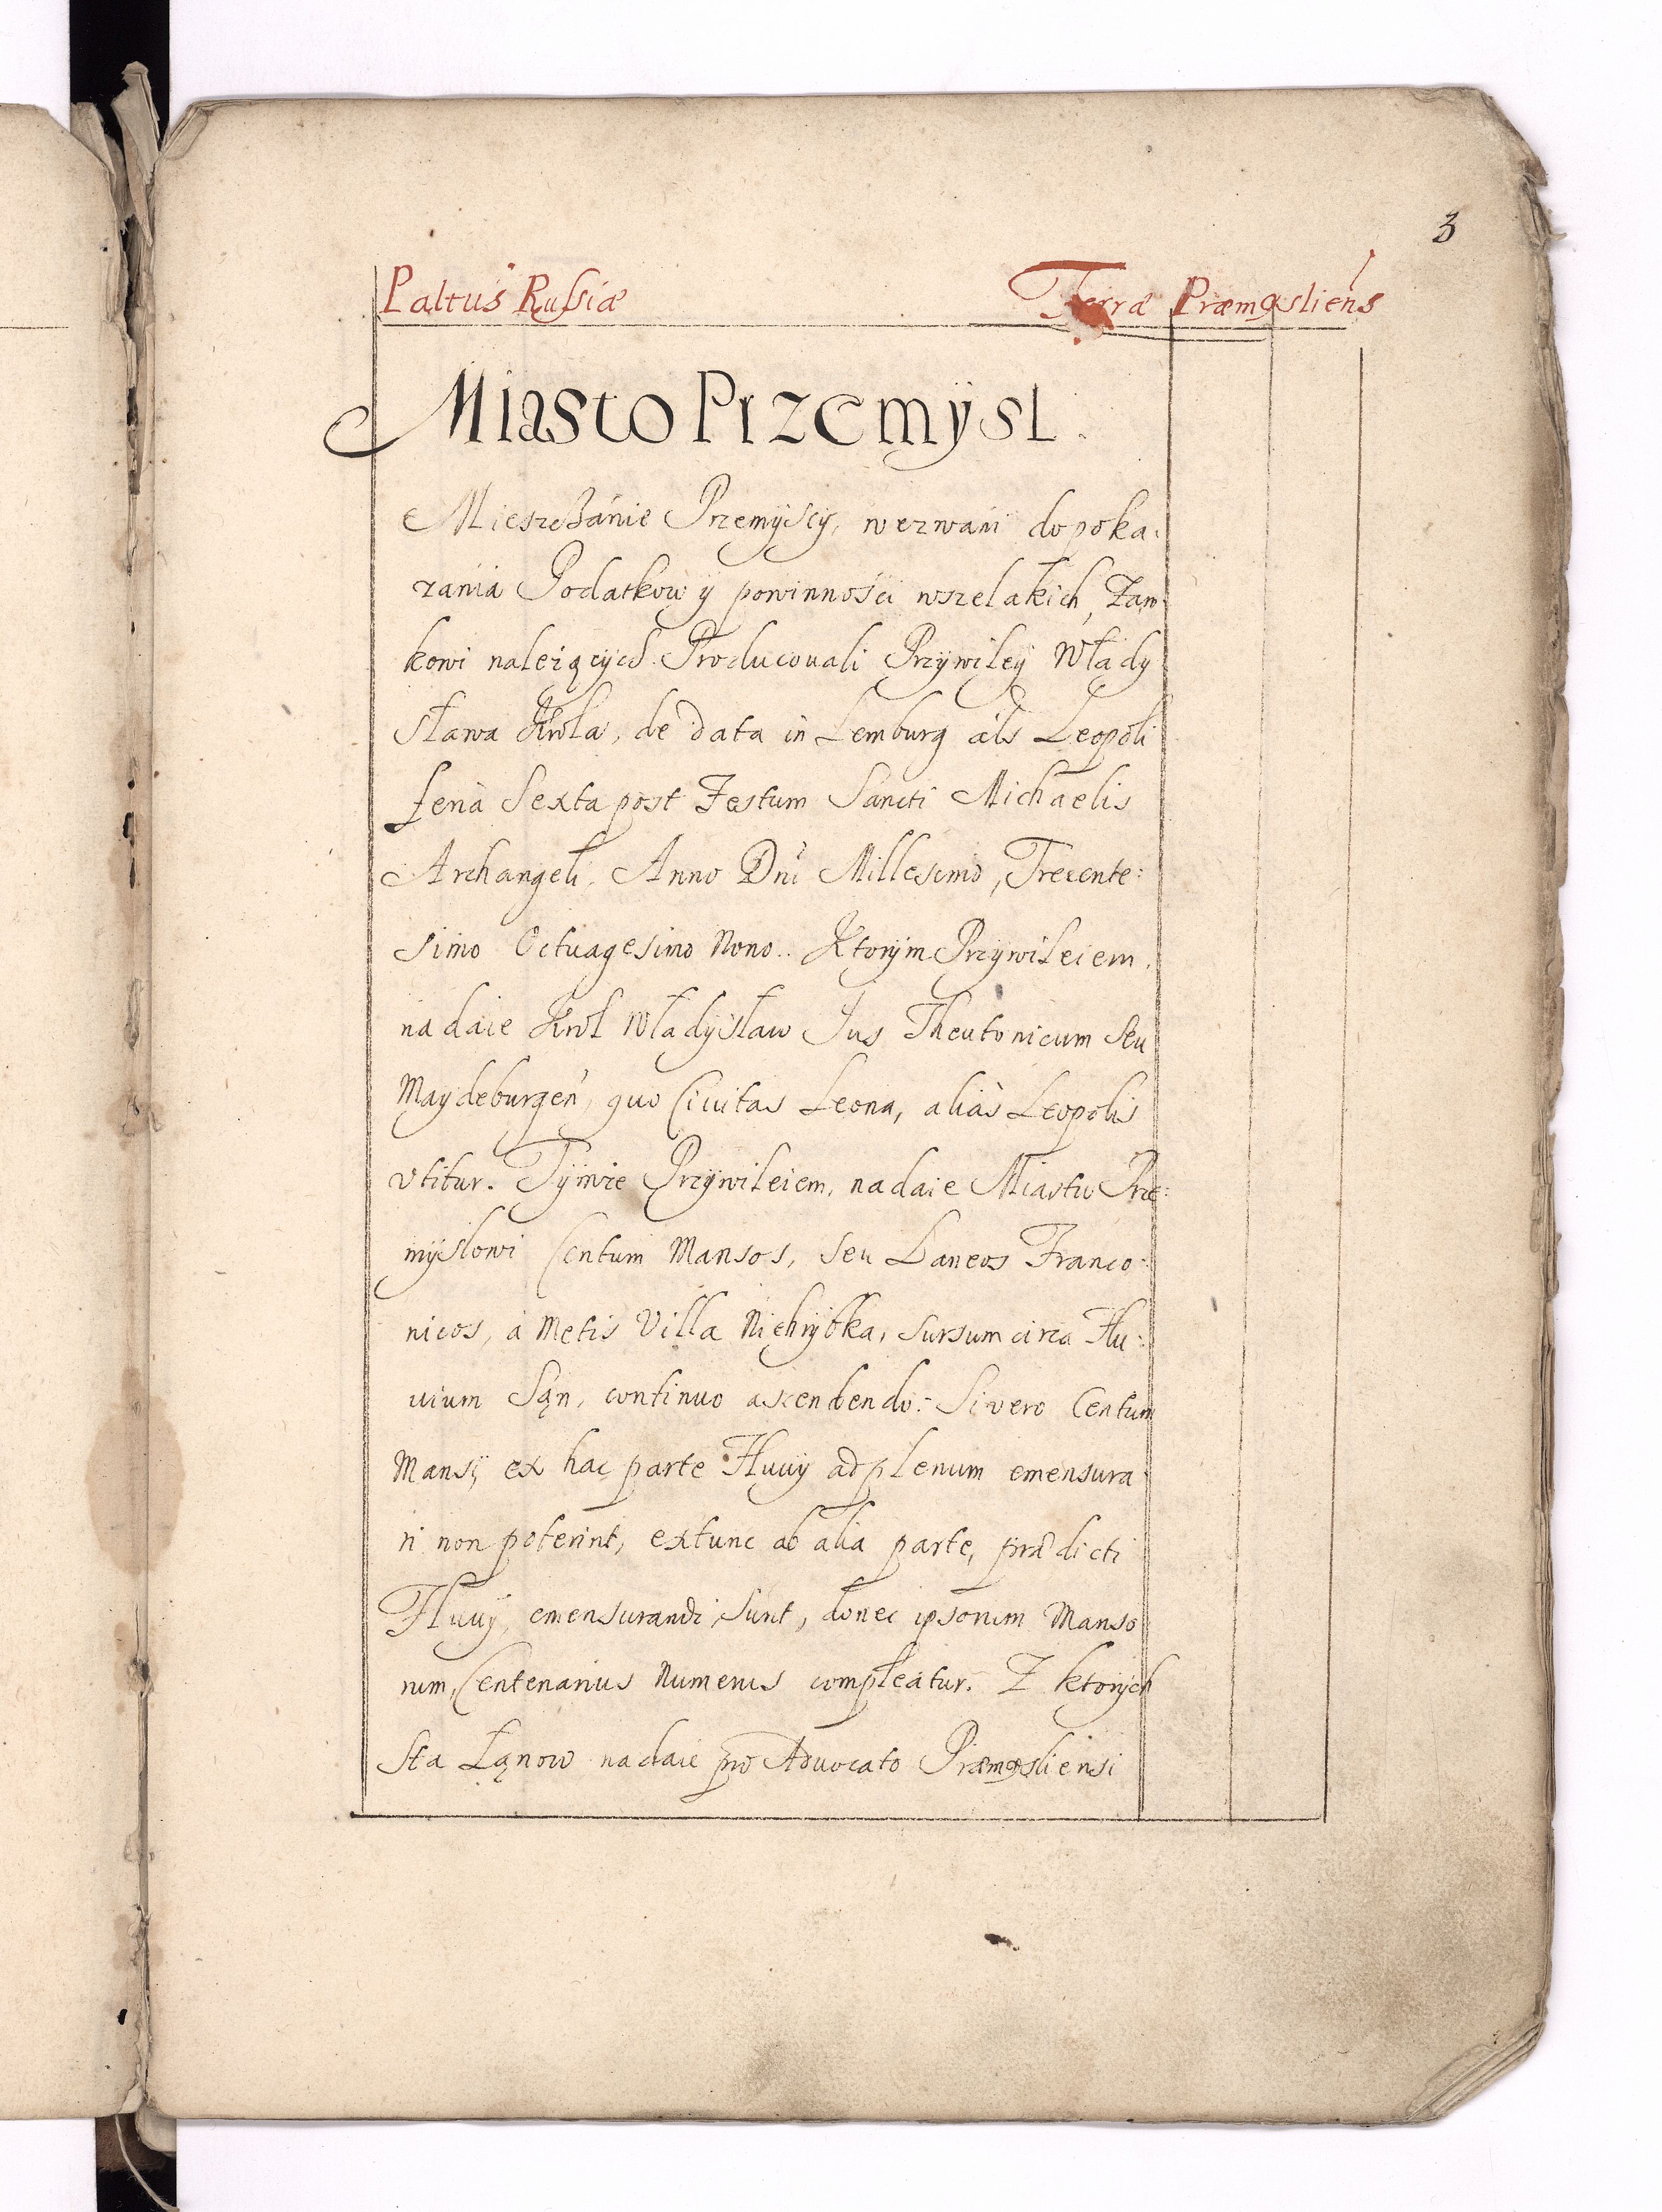 3
Paltus Rusiæ Terræ Præmysliens
Miasto Przemÿsl.
Mieszczánie Przemÿscÿ, wezwani do poka:
zania Podatkow ÿ powinnośći wszelakich, Zam:
kowi należącÿch. Producowali Przÿwileÿ Włady
sława Krola, de data in Lemburg als Leopoli
feria Sexta post Festum Sancti Michaelis
Archangeli, Anno Dni Millesimo, Trecente:
simo Octuagesimo Nono.. Ktorÿm Przÿwileiem,
nadaie Krol Władÿsław Jus Theutonicum seu
Maydeburgen, quo Civitas Leona, aliàs Leopolis
vtitur. Tÿmże Przÿwileiem, nadaie Miastu Prze:
mÿslowi Centum Mansos, seu Laneos Franco:
nicos, à Metis Villa Niehrÿbka, sursum circa Flu:
uium Sąn, continuo ascendendo: Si vero Centum
Mansÿ ex hac parte Fluuÿ ad plenum emensura
ri non poterint, extunc ab alia parte, prædicti
Fluuÿ, emensurandi sunt, donec ipsorum Manso
rum, Centenarius Numerus compleatur. Z ktorÿch
Sta Łąnow nadaie pro Advocato Præmysliensi